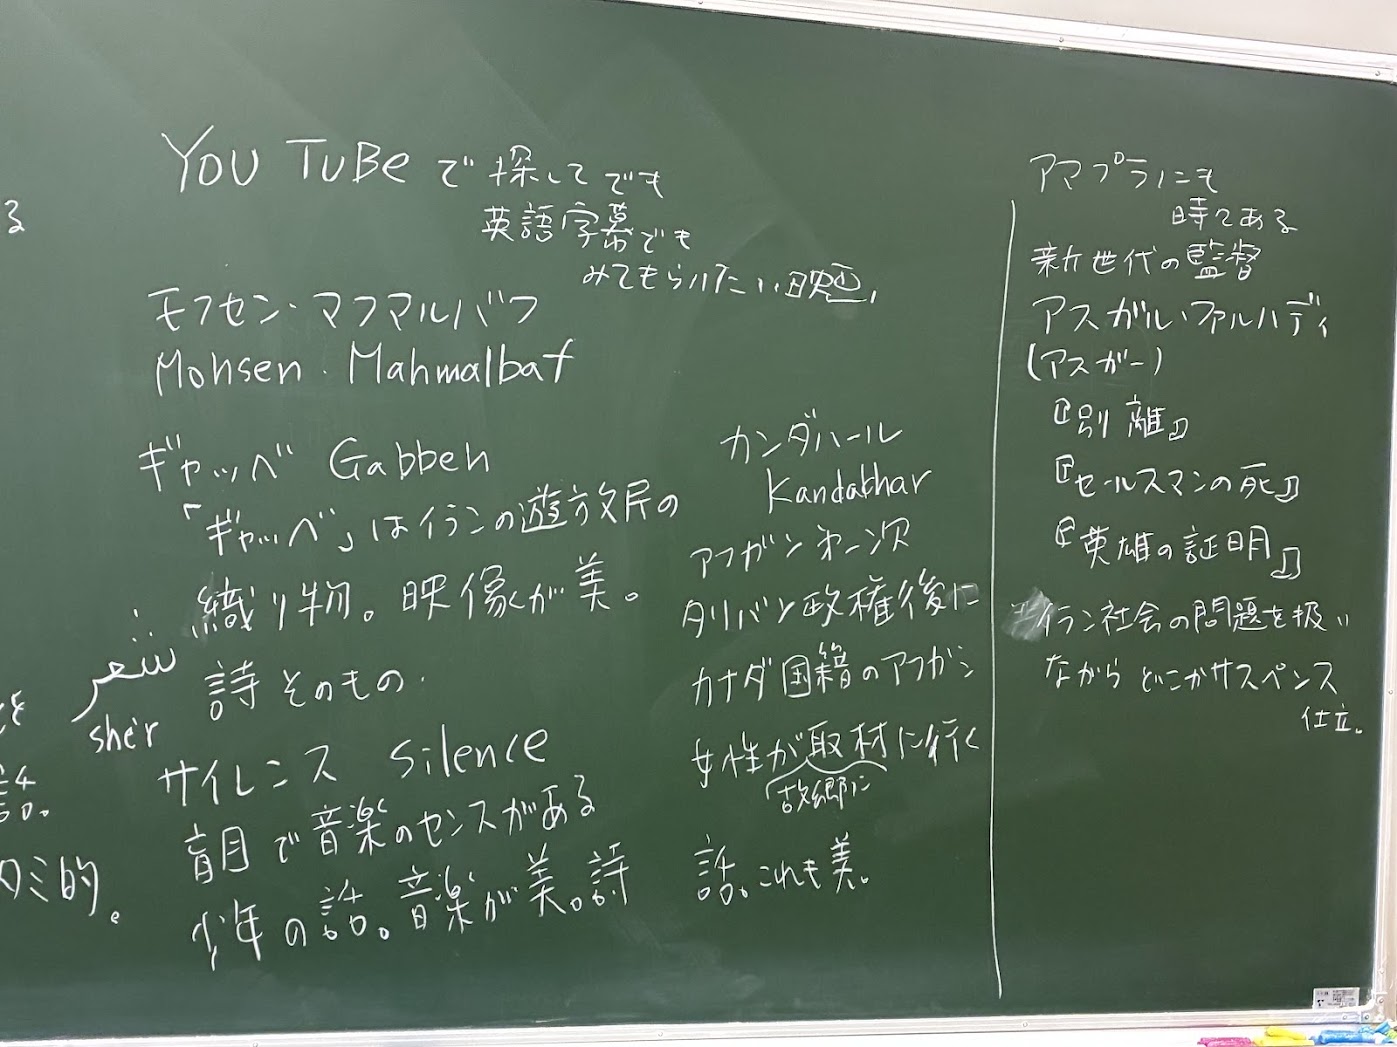 る
YOU TUBE で 探してでも
英語字幕でも
みてもらいたい映画,
モフセン・マフマルバフ
Mohsen. Mahmalbaf
ギャッベ Gabbeh
「ギャッベ」はイランの遊放民の
織り物。映像が美。
詩そのもの.
شعر
she'r
サイレンス Silence
盲目で音楽のセンスがある
少年の話。音楽が美。詩
タミ的。
カンダハール
Kandakhar
アフガン第一次
タリバン政権後に
カナダ国籍のアフガン
女性が取材に行く
故郷に
話。これも美。
アマプラにも
時々ある
新世代の監督
アスガル・ファルハディ
(アスガー)
『別離』
『セールスマンの死』
『英雄の証明』
イラン社会の問題を扱い
ながら どこかサスペンス
仕立。